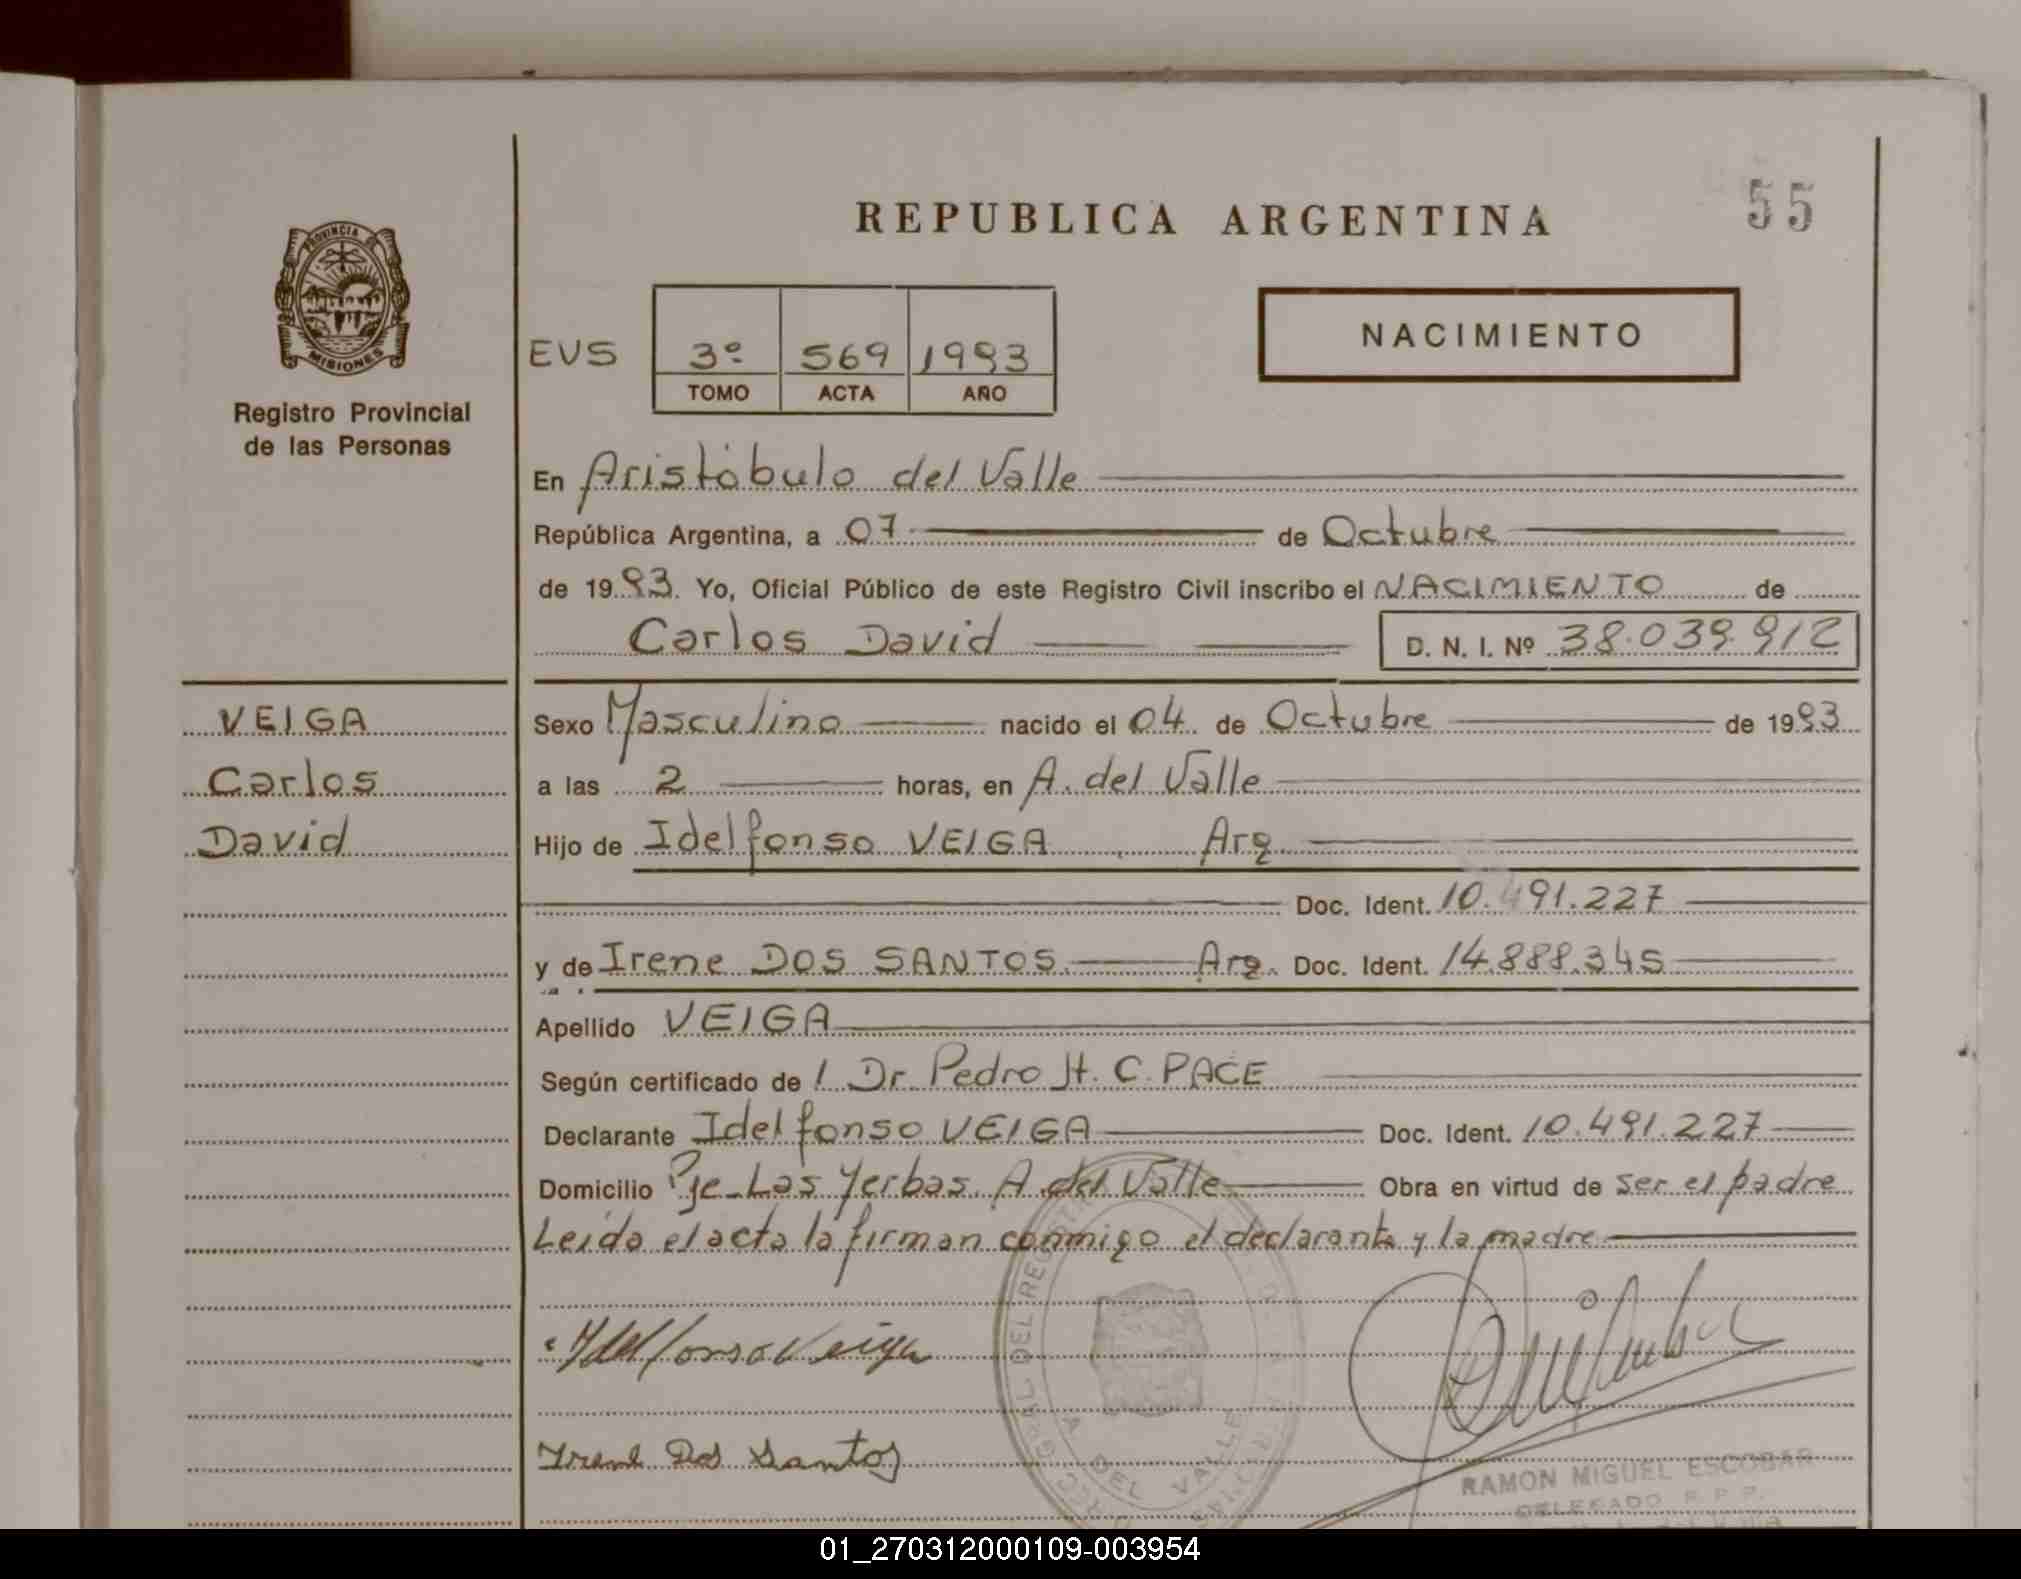 REPUBLICA ARGENTINA
55
PROVINCIA DE
MISIONES
Registro Provincial
de las Personas
EVS
3º 569 1993
TOMO ACTA AÑO
NACIMIENTO
En Aristóbulo del Valle
República Argentina, a 07 de Octubre
de 1993. Yo, Oficial Público de este Registro Civil inscribo el NACIMIENTO de
Carlos David D. N. I. Nº 38.039.912
VEIGA
Carlos
David
Sexo Masculino nacido el 04 de Octubre de 1993
a las 2 horas, en A. del Valle
Hijo de Idelfonso VEIGA Arg.
Doc. Ident. 10.491.227
y de Irene DOS SANTOS Arg. Doc. Ident. 14.888.345
Apellido VEIGA
Según certificado de / Dr. Pedro H. C. PACE
Declarante Idelfonso VEIGA Doc. Ident. 10.491.227
Domicilio Pje. Las Yerbas. A. del Valle Obra en virtud de ser el padre
Leída el acta la firman conmigo el declarante y la madre
Idelfonso Veiga
Irene Dos Santos
A DEL VALLE
RAMON MIGUEL ESCOBAR
DELEGADO R. P. P.
01_270312000109-003954